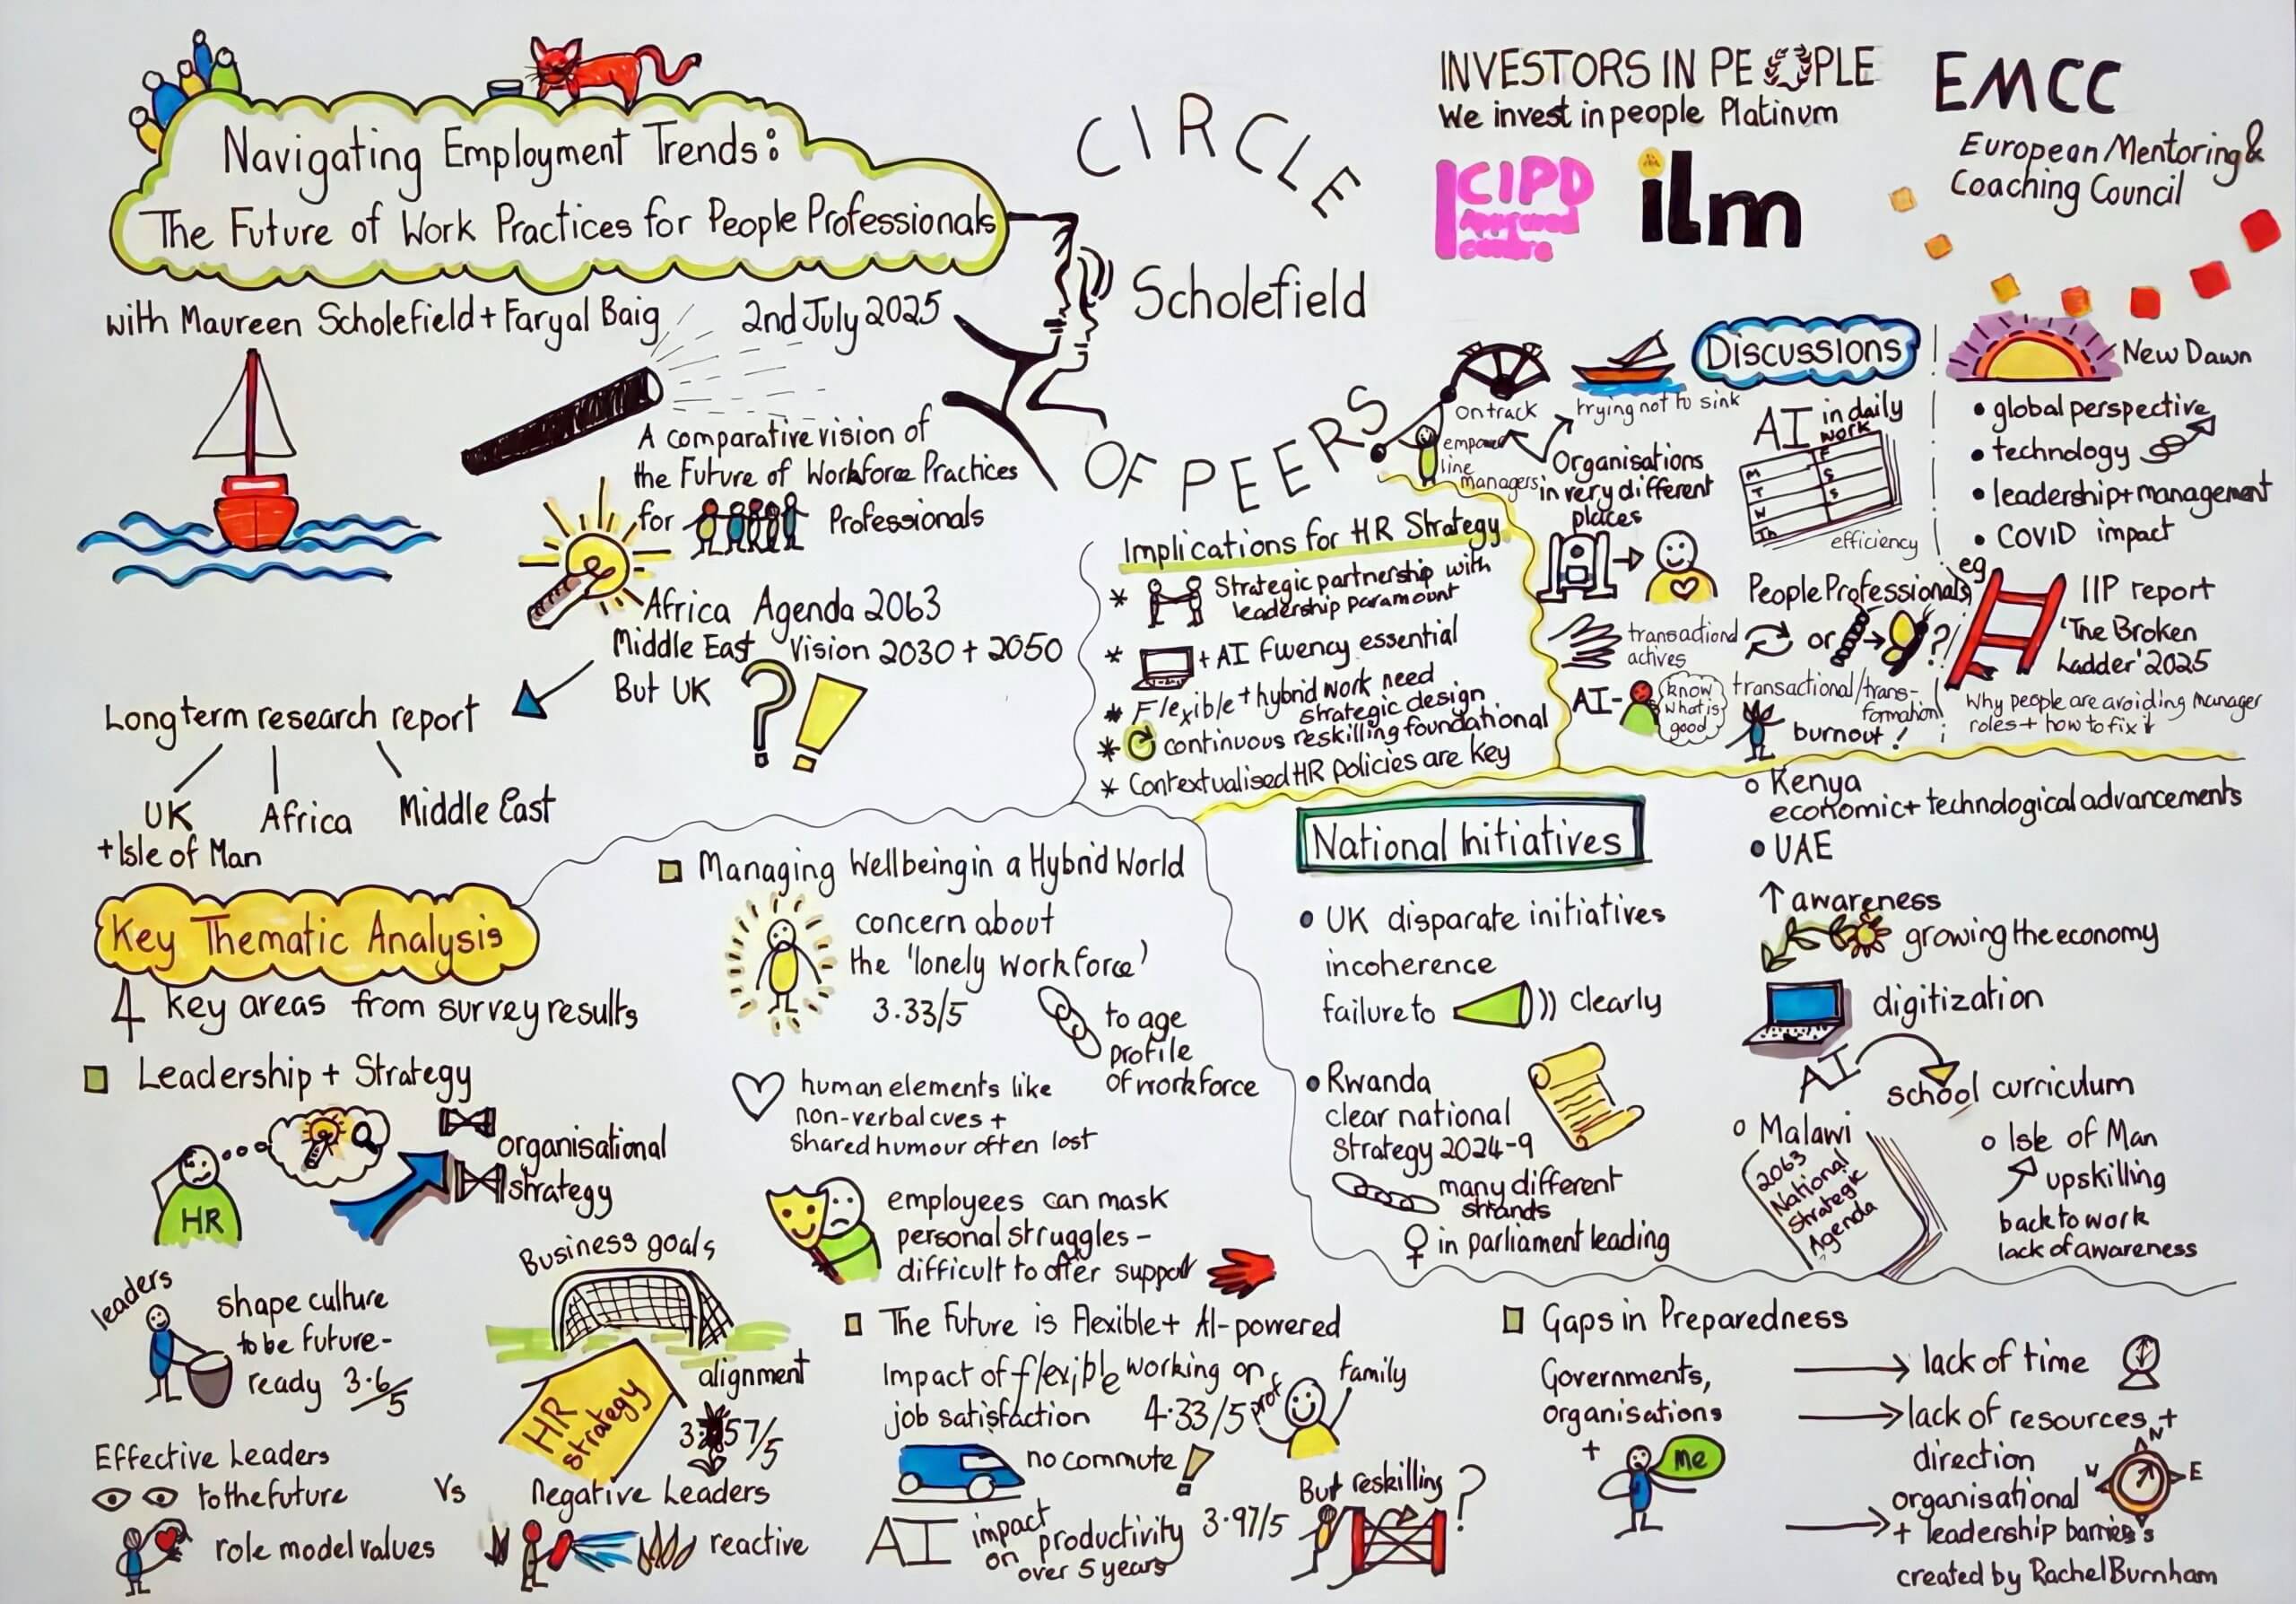 Navigating Employment Trends:
The Future of Work Practices for People Professionals
with Maureen Scholefield + Faryal Baig
2nd July 2025
CIRCLE
Scholefield
OF PEERS
INVESTORS IN PEOPLE
We invest in people Platinum
CIPD
Approved
Centre
ilm
EMCC
European Mentoring &
Coaching Council
A comparative vision of
the Future of Workforce Practices
for Professionals
Africa Agenda 2063
Middle East Vision 2030 + 2050
But UK ? !
Long term research report
UK
+ Isle of Man
Africa
Middle East
Implications for HR Strategy
* Strategic partnership with
leadership paramount
* + AI fluency essential
* Flexible + hybrid work need
strategic design
* continuous reskilling foundational
* Contextualised HR policies are key
Discussions
on track
trying not to sink
empower
line
managers
Organisations
in very different
places
transactional
actives
AI -
know
what is
good
AI in daily
work
M
T
W
Th
F
S
S
efficiency
People Professionals
or
?
transactional/trans-
formation
burnout!
New Dawn
• global perspective
• technology
• leadership + management
• COVID impact
eg
IIP report
'The Broken
Ladder' 2025
Why people are avoiding manager
roles + how to fix it
Key Thematic Analysis
4 key areas from survey results
Leadership + Strategy
HR
organisational
strategy
leaders
shape culture
to be future-
ready 3.6/5
Business goals
HR
strategy
alignment
3.57/5
Effective Leaders
to the future
role model values
Vs
Negative Leaders
reactive
Managing Wellbeing in a Hybrid World
concern about
the 'lonely workforce'
3.33/5
to age
profile
of workforce
human elements like
non-verbal cues +
shared humour often lost
employees can mask
personal struggles -
difficult to offer support
The Future is Flexible + AI-powered
Impact of flexible working on
job satisfaction 4.33/5
prof
family
no commute!
AI impact
on productivity
over 5 years
3.97/5
But reskilling ?
National Initiatives
• UK disparate initiatives
incoherence
failure to )) clearly
• Rwanda
clear national
Strategy 2024-9
many different
strands
♀ in parliament leading
Kenya
economic + technological advancements
• UAE
↑ awareness
growing the economy
digitization
AI
school curriculum
Malawi
2063
National
Strategic
Agenda
Isle of Man
upskilling
back to work
lack of awareness
Gaps in Preparedness
Governments,
organisations
+
me
lack of time
lack of resources +
direction
organisational
+ leadership barriers
N
W
E
S
created by Rachel Burnham